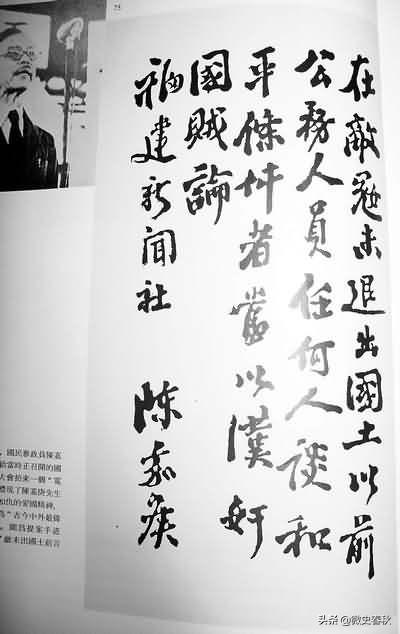 在敵寇未退出國土以前
公務人員任何人談和
平條件者當以漢奸
國賊論
福建新聞社 陳嘉庚
，國民參政員陳嘉
給當時正召開的國
大會拍來一個“電
體現了陳嘉庚先生
如仇的愛國精神，
為“古今中外最偉
。圖爲提案手迹
敵未出國土前言
头条 @微史春秋